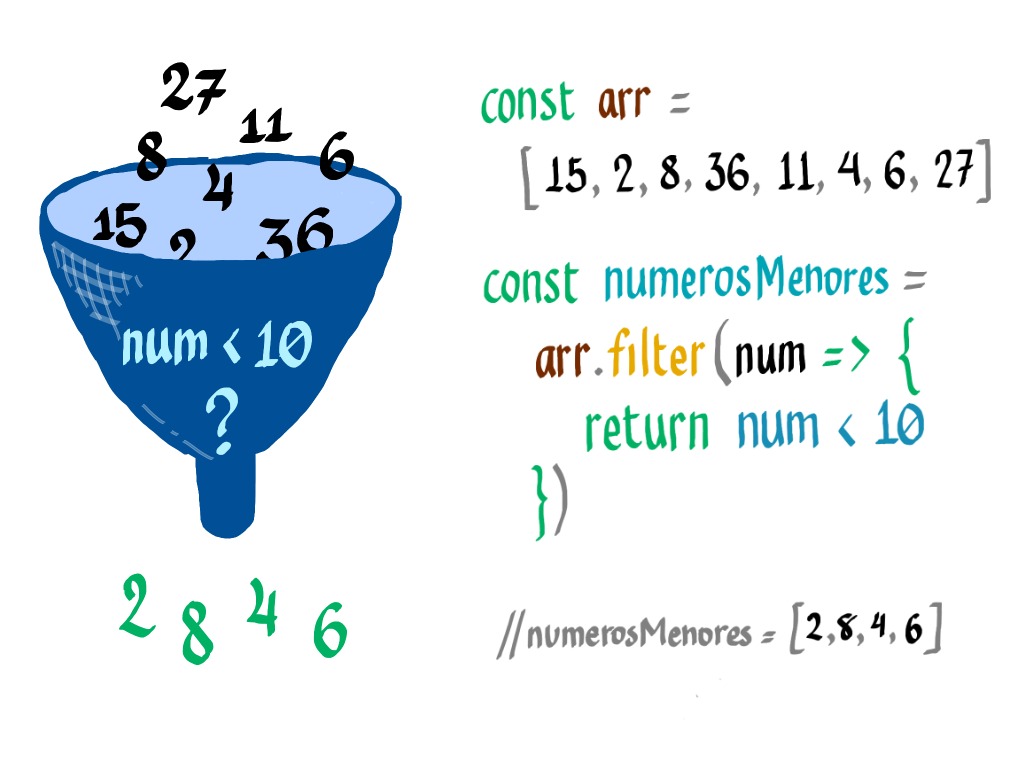 27
11
8
6
4
15
2
36
num < 10
?
2 8 4 6
const arr =
[15, 2, 8, 36, 11, 4, 6, 27]
const numerosMenores =
arr.filter(num => {
return num < 10
})
//numerosMenores = [2,8,4,6]